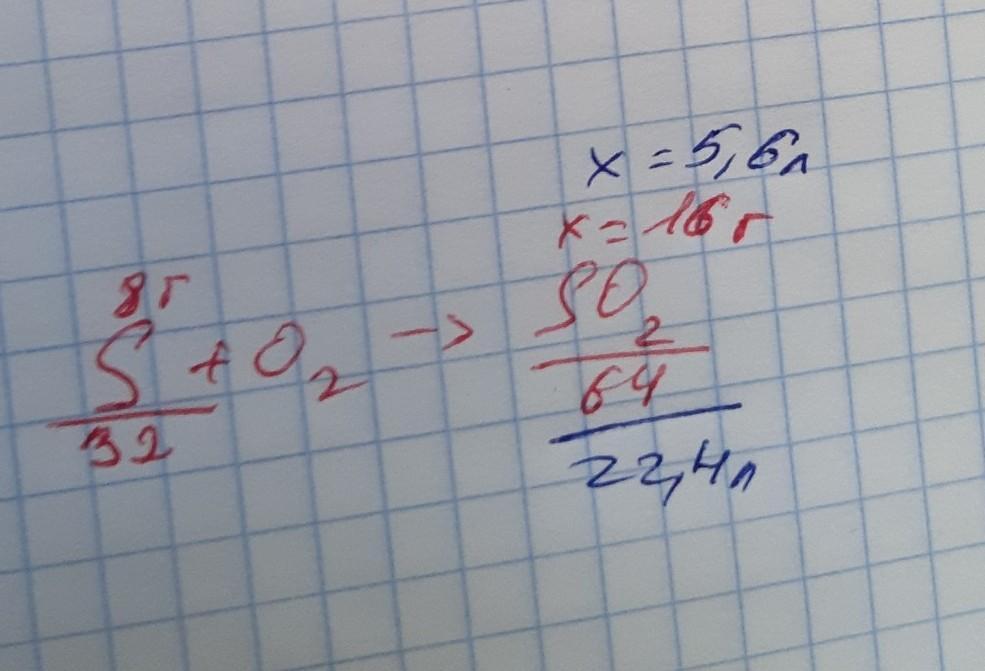 x = 5,6л
x = 16 г
8 г
S + O₂ -> SO₂
32
64
22,4л